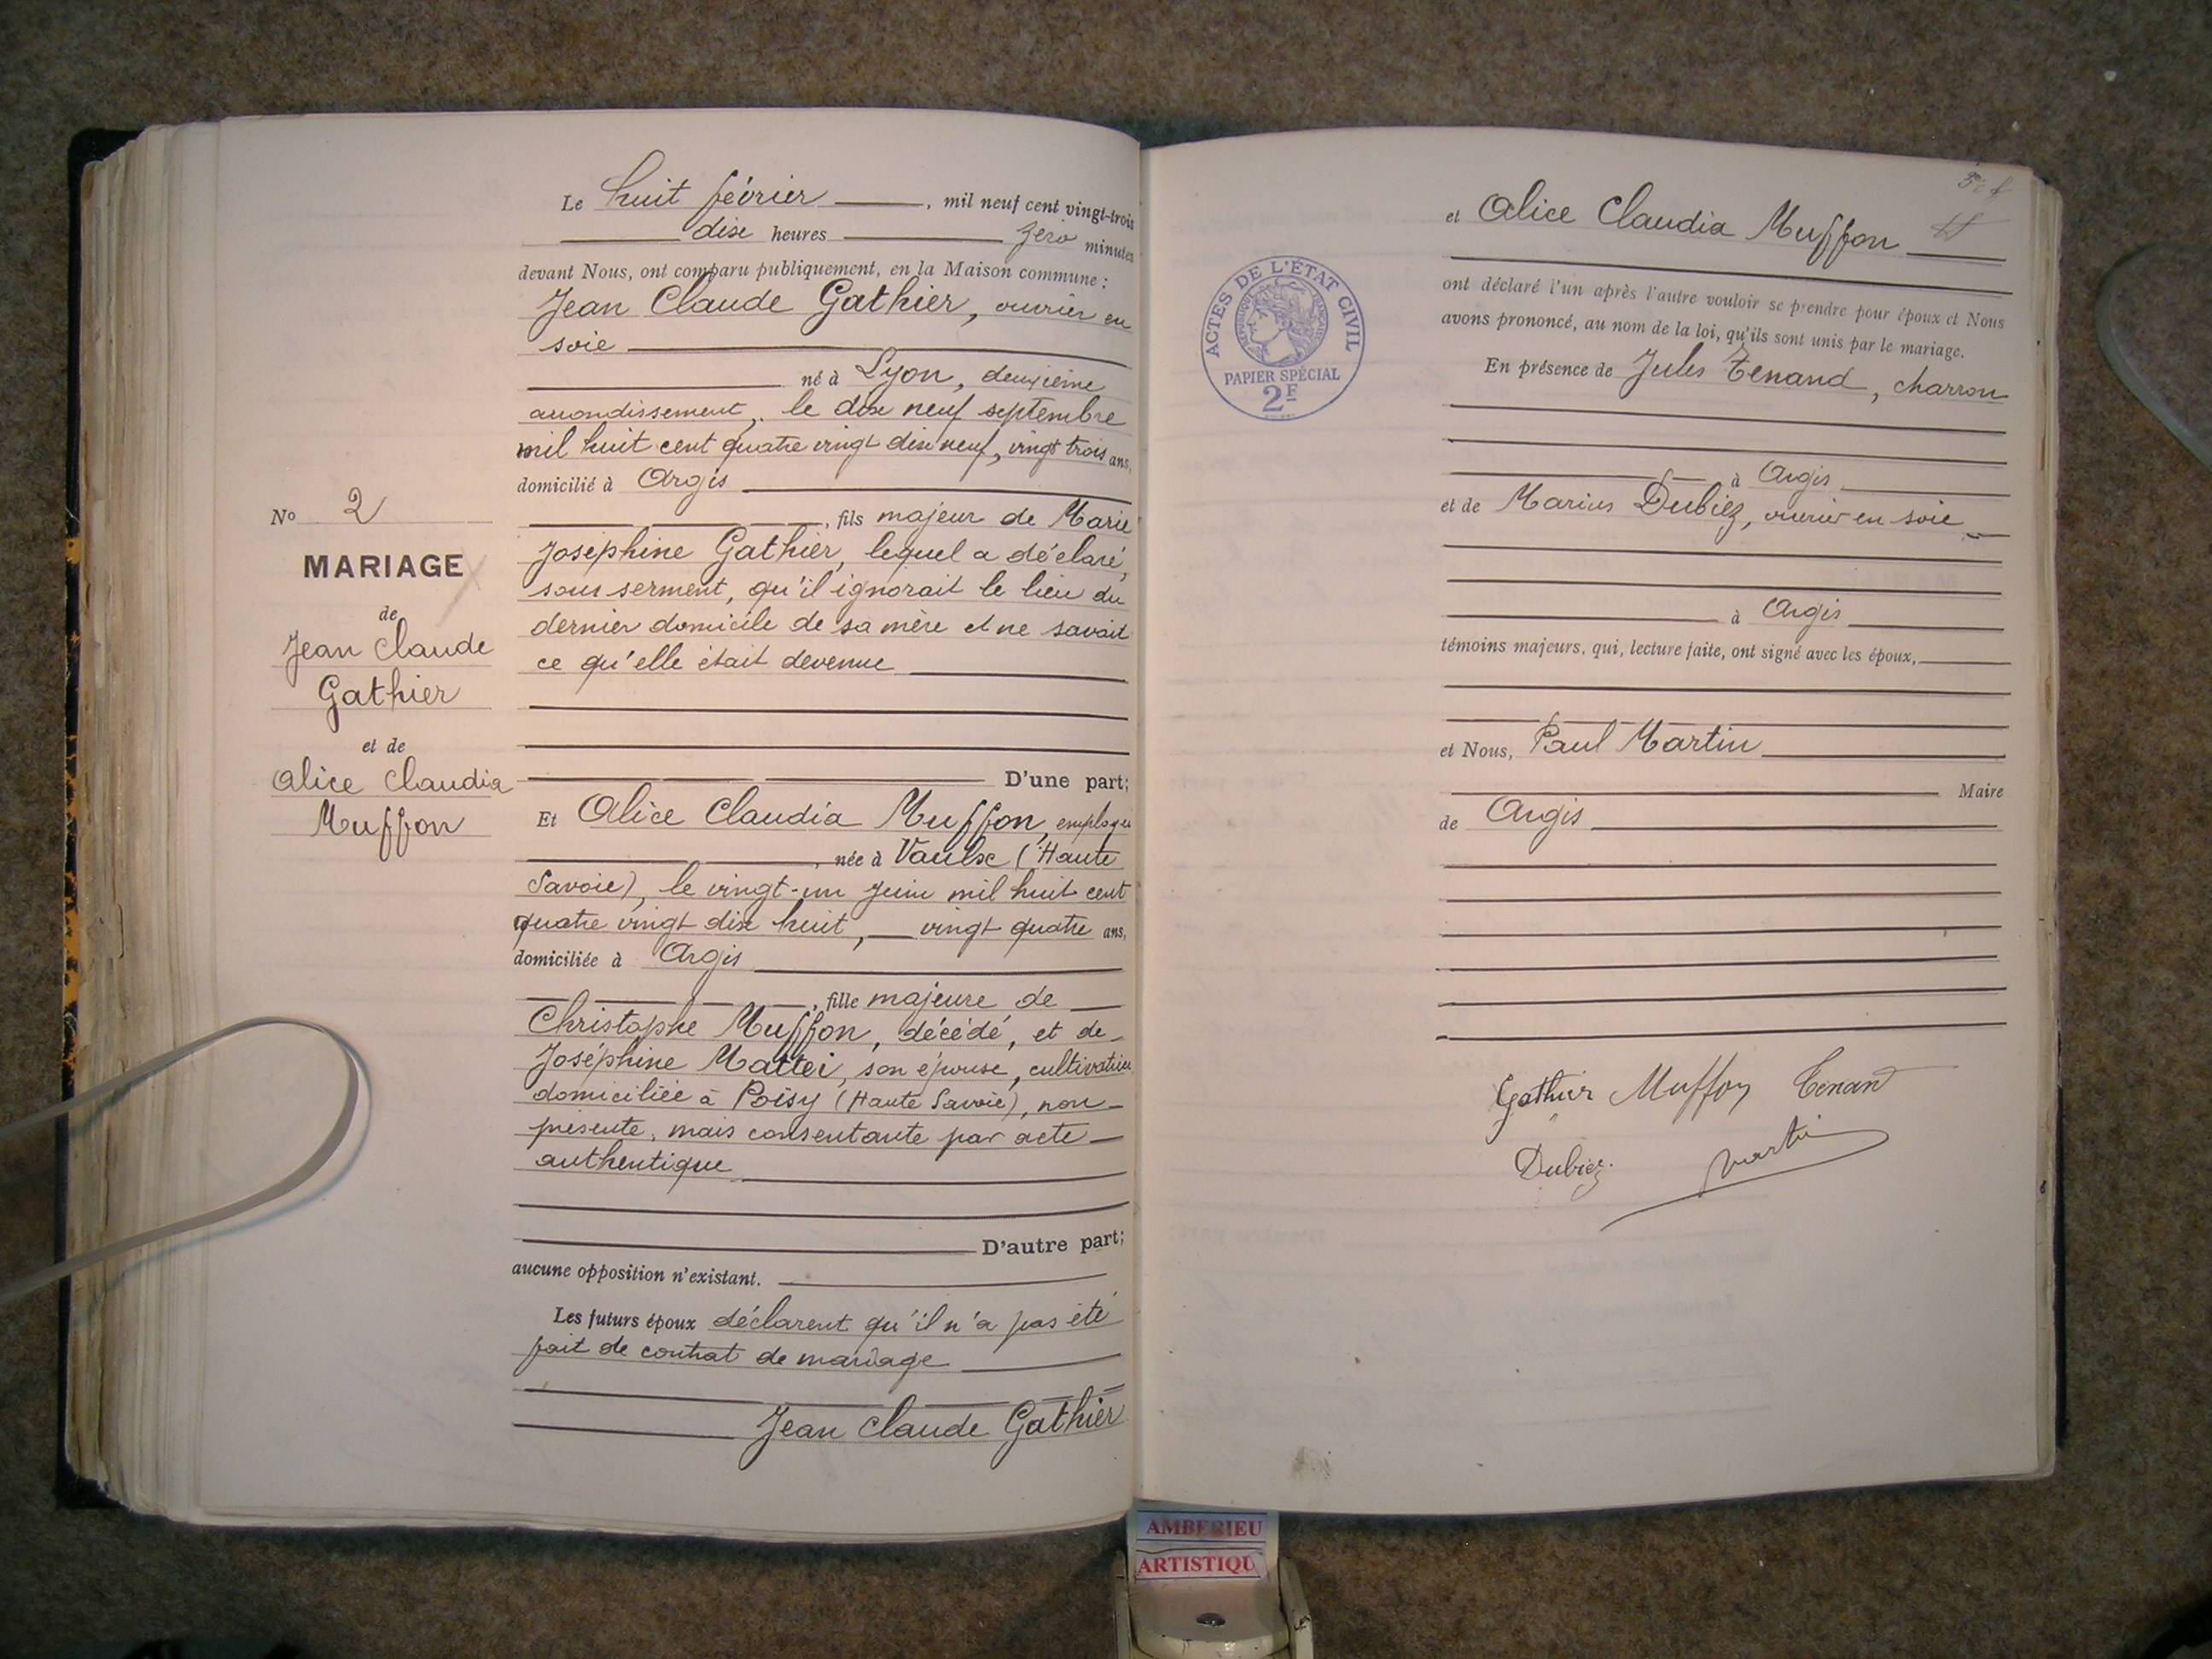 Le huit février, mil neuf cent vingt-trois
dix heures zéro minutes
devant Nous, ont comparu publiquement, en la Maison commune :
Jean Claude Gathier, ouvrier en
soie
né à Lyon, deuxième
arrondissement, le dix neuf septembre
mil huit cent quatre vingt dix neuf, vingt trois ans,
domicilié à Argis
, fils majeur de Marie
Joséphine Gathier, lequel a déclaré,
sous serment, qu'il ignorait le lieu du
dernier domicile de sa mère et ne savait
ce qu'elle était devenue
D'une part;
Et Alice Claudia Muffon, employée
, née à Vaulx (Haute
Savoie), le vingt-un Juin mil huit cent
quatre vingt dix huit, vingt quatre ans,
domiciliée à Argis
, fille majeure de
Christophe Muffon, décédé, et de
Joséphine Mattei, son épouse, cultivatrice
domiciliée à Poisy (Haute Savoie), non
présente, mais consentante par acte
authentique
D'autre part;
aucune opposition n'existant.
Les futurs époux déclarent qu'il n'a pas été
fait de contrat de mariage
Jean Claude Gathier
No 2
MARIAGE
de
Jean Claude
Gathier
et de
Alice Claudia
Muffon
et Alice Claudia Muffon
ont déclaré l'un après l'autre vouloir se prendre pour époux et Nous
avons prononcé, au nom de la loi, qu'ils sont unis par le mariage.
En présence de Jules Tenand, charron
à Argis
et de Marius Dubiez, ouvrier en soie
à Argis
témoins majeurs, qui, lecture faite, ont signé avec les époux,
et Nous, Paul Martin
Maire
de Argis
Gathier Muffon Tenand
Dubiez. Martin
ACTES DE L'ÉTAT CIVIL
RÉPUBLIQUE FRANÇAISE
PAPIER SPÉCIAL
2F
AMBERIEU
ARTISTIQU